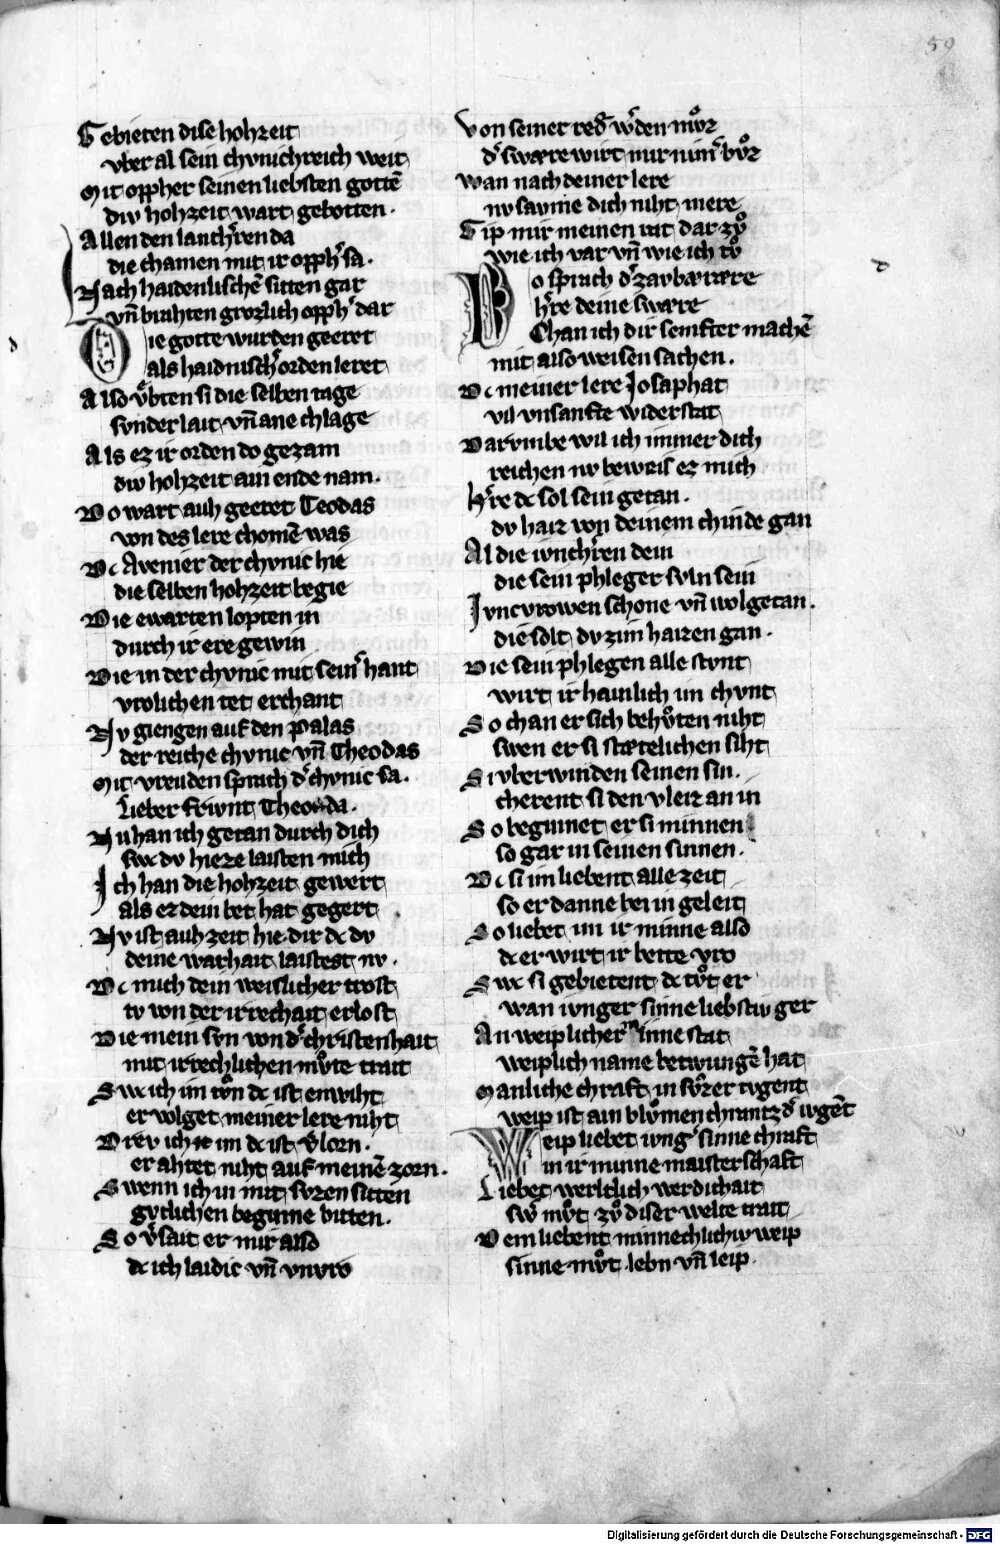 59
Gebieten dise hohzeit
vber al sein chvnichreich weit
Mit oppher seinen liebsten gottē
div hohzeit wart gebotten.
Allen den lanth'ren da
die chamen mit ir opph' sa.
Nach haidenlischē sitten gar
vn̄ brahten grozlich opph' dar
Die gotte wurden geeret
als haidnisch' orden leret
Also vͤbten si die selben tage
svnder lait vn̄ ane chlage
Als ez ir orden do gezam
div hohzeit ain ende nam.
Do wart auh geeret Teodas
von des lere chomē was
Dc Avenier der chvnic hie
die selben hohzeit begie
Die ewarten lopten in
durch ir ere gewin
Die in der chvnic mit sein' hant
vrolichen tet erchant
Nv giengen auf den palas
der reiche chvnic vn̄ Theodas
Mit vreuden sprach d' chvnic sa.
Lieber frivnt Theoda.
Nu han ich getan durch dich
swc dv hieze laisten mich
Ich han die hohzeit gewert
als ez dein bet hat gegert
Nv ist auh zeit hie dir dc dv
deine warhait laistest nv.
Dc mich dein weislicher trost
tv von der irrechait erlost
Die mein svn von d' christenhait
mit irrechlichen mvͦte trait
Swc ich im tvͦn dc ist enwiht
er volget meiner lere niht
Drev ich im dc ist v'lorn.
er ahtet niht auf meinē zorn.
Swenn ich in mit svzen sitten
gvtlichen beginne bitten.
So v'sait er mir also
dc ich laidic vn̄ vnvro
Von seiner red w'den mvͦz
d' swære wirt mir nim' bvͦz
Wan nach deiner lere
nv savme dich niht mere
Gip mir meinen rat dar zvͦ
wie ich var vn̄ wie ich tvͦ
Do sprach d' zavbærære
h're deine swære
Chan ich dir semfter machē
mit also weisen sachen.
Dc meiner lere Josaphat
vil vnsanfte widerstat
Darvmbe wil ich immer dich
reichen nv beweis ez mich
H're dc sol sein getan.
dv haiz von deinem chinde gan
Al die ivnch'ren dein
die sein phleger svln sein
Ivncvrowen schone vn̄ wolgetan.
die solt dv zim haizen gan.
Die sein phlegen alle stvnt
wirt ir hainlich im chvnt
So chan er sich behvͦten niht
swen er si stætelichen siht
Si vberwinden seinen sin.
cherent si den vleiz an in
So beginnet er si minnen
so gar in seinen sinnen.
Dc si im liebent alle zeit
so er danne bei in geleit
So liebet im ir minne also
dc er wirt ir bette vro
Swc si gebietent dc tvͦt er
wan ivnger sinne liebstiv ger
An weiplicher minne stat
weiplich name betwungē hat
Manliche chraft in svͦzer tvgent
weip ist ain blvͦmen chrantz d' ivgēt
Weip liebet ivng' sinne chraft
in ir minne maisterschaft
Liebet werltlich werdichait
sw' mvͦt zvͦ diser welte trait
Dem liebent minnechlichiv weip
sinne mvͦt lebn vn̄ leip.
Digitalisierung gefördert durch die Deutsche Forschungsgemeinschaft - DFG